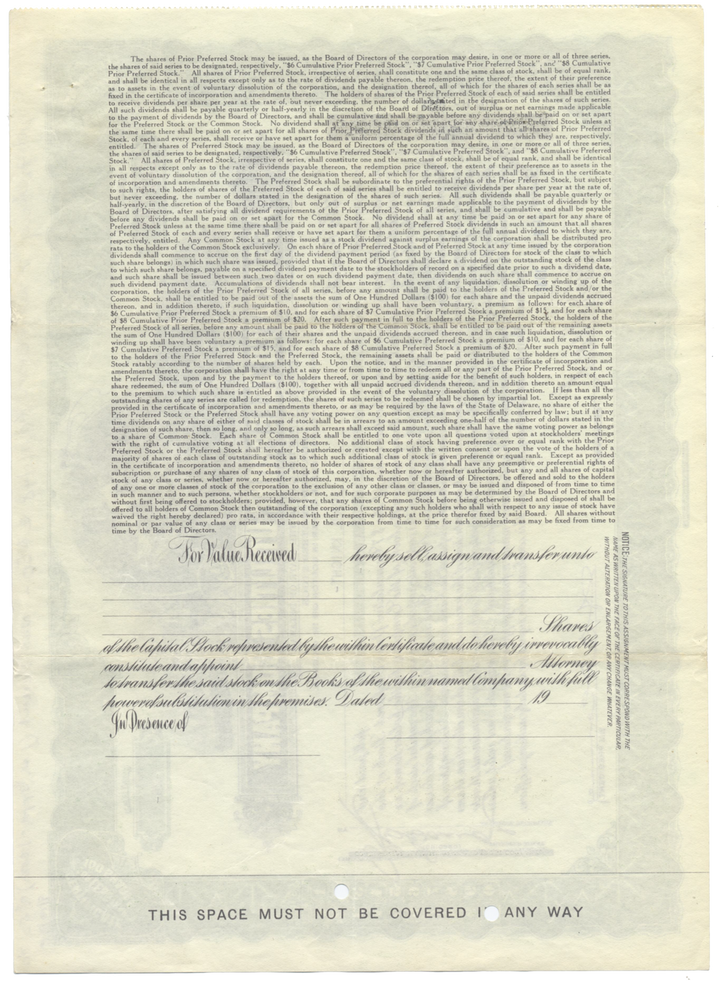 The shares of Prior Preferred Stock may be issued, as the Board of Directors of the corporation may desire, in one or more or all of three series,
the shares of said series to be designated, respectively, "$6 Cumulative Prior Preferred Stock", "$7 Cumulative Prior Preferred Stock", and "$8 Cumulative
Prior Preferred Stock." All shares of Prior Preferred Stock, irrespective of series, shall constitute one and the same class of stock, shall be of equal rank,
and shall be identical in all respects except only as to the rate of dividends payable thereon, the redemption price thereof, the extent of their preference
as to assets in the event of voluntary dissolution of the corporation, and the designation thereof, all of which for the shares of each series shall be as
fixed in the certificate of incorporation and amendments thereto. The holders of shares of the Prior Preferred Stock of each of said series shall be entitled
to receive dividends per share per year at the rate of, but never exceeding, the number of dollars stated in the designation of the shares of such series.
All such dividends shall be payable quarterly or half-yearly in the discretion of the Board of Directors, out of surplus or net earnings made applicable
to the payment of dividends by the Board of Directors, and shall be cumulative and shall be payable before any dividends shall be paid on or set apart
for the Preferred Stock or the Common Stock. No dividend shall at any time be paid on or set apart for any share of Prior Preferred Stock unless at
the same time there shall be paid on or set apart for all shares of Prior Preferred Stock dividends in such an amount that all shares of Prior Preferred
Stock, of each and every series, shall receive or have set apart for them a uniform percentage of the full annual dividend to which they are, respectively,
entitled. The shares of Preferred Stock may be issued, as the Board of Directors of the corporation may desire, in one or more or all of three series,
the shares of said series to be designated, respectively, "$6 Cumulative Preferred Stock", "$7 Cumulative Preferred Stock", and "$8 Cumulative Preferred
Stock." All shares of Preferred Stock, irrespective of series, shall constitute one and the same class of stock, shall be of equal rank, and shall be identical
in all respects except only as to the rate of dividends payable thereon, the redemption price thereof, the extent of their preference as to assets in the
event of voluntary dissolution of the corporation, and the designation thereof, all of which for the shares of each series shall be as fixed in the certificate
of incorporation and amendments thereto. The Preferred Stock shall be subordinate to the preferential rights of the Prior Preferred Stock, but subject
to such rights, the holders of shares of the Preferred Stock of each of said series shall be entitled to receive dividends per share per year at the rate of,
but never exceeding, the number of dollars stated in the designation of the shares of such series. All such dividends shall be payable quarterly or
half-yearly, in the discretion of the Board of Directors, but only out of surplus or net earnings made applicable to the payment of dividends by the
Board of Directors, after satisfying all dividend requirements of the Prior Preferred Stock of all series, and shall be cumulative and shall be payable
before any dividends shall be paid on or set apart for the Common Stock. No dividend shall at any time be paid on or set apart for any share of
Preferred Stock unless at the same time there shall be paid on or set apart for all shares of Preferred Stock dividends in such an amount that all shares
of Preferred Stock of each and every series shall receive or have set apart for them a uniform percentage of the full annual dividend to which they are,
respectively, entitled. Any Common Stock at any time issued as a stock dividend against surplus earnings of the corporation shall be distributed pro
rata to the holders of the Common Stock exclusively. On each share of Prior Preferred Stock and of Preferred Stock at any time issued by the corporation
dividends shall commence to accrue on the first day of the dividend payment period (as fixed by the Board of Directors for stock of the class to which
such share belongs) in which such share was issued, provided that if the Board of Directors shall declare a dividend on the outstanding stock of the class
to which such share belongs, payable on a specified dividend payment date to the stockholders of record on a specified date prior to such a dividend date,
and such share shall be issued between such two dates or on such dividend payment date, then dividends on such share shall commence to accrue on
such dividend payment date. Accumulations of dividends shall not bear interest. In the event of any liquidation, dissolution or winding up of the
corporation, the holders of the Prior Preferred Stock of all series, before any amount shall be paid to the holders of the Preferred Stock and/or the
Common Stock, shall be entitled to be paid out of the assets the sum of One Hundred Dollars ($100) for each share and the unpaid dividends accrued
thereon, and in addition thereto, if such liquidation, dissolution or winding up shall have been voluntary, a premium as follows: for each share of
$6 Cumulative Prior Preferred Stock a premium of $10, and for each share of $7 Cumulative Prior Preferred Stock a premium of $15, and for each share
of $8 Cumulative Prior Preferred Stock a premium of $20. After such payment in full to the holders of the Prior Preferred Stock, the holders of the
Preferred Stock of all series, before any amount shall be paid to the holders of the Common Stock, shall be entitled to be paid out of the remaining assets
the sum of One Hundred Dollars ($100) for each of their shares and the unpaid dividends accrued thereon, and in case such liquidation, dissolution or
winding up shall have been voluntary a premium as follows: for each share of $6 Cumulative Preferred Stock a premium of $10, and for each share of
$7 Cumulative Preferred Stock a premium of $15, and for each share of $8 Cumulative Preferred Stock a premium of $20. After such payment in full
to the holders of the Prior Preferred Stock and the Preferred Stock, the remaining assets shall be paid or distributed to the holders of the Common
Stock ratably according to the number of shares held by each. Upon the notice, and in the manner provided in the certificate of incorporation and
amendments thereto, the corporation shall have the right at any time or from time to time to redeem all or any part of the Prior Preferred Stock, and or
the Preferred Stock, upon and by the payment to the holders thereof, or upon and by setting aside for the benefit of such holders, in respect of each
share redeemed, the sum of One Hundred Dollars ($100), together with all unpaid accrued dividends thereon, and in addition thereto an amount equal
to the premium to which such share is entitled as above provided in the event of the voluntary dissolution of the corporation. If less than all the
outstanding shares of any series are called for redemption, the shares of such series to be redeemed shall be chosen by impartial lot. Except as expressly
provided in the certificate of incorporation and amendments thereto, or as may be required by the laws of the State of Delaware, no share of either the
Prior Preferred Stock or the Preferred Stock shall have any voting power on any question except as may be specifically conferred by law; but if at any
time dividends on any share of either of said classes of stock shall be in arrears to an amount exceeding one-half of the number of dollars stated in the
designation of such share, then so long, and only so long, as such arrears shall exceed said amount, such share shall have the same voting power as belongs
to a share of Common Stock. Each share of Common Stock shall be entitled to one vote upon all questions voted upon at stockholders meetings
with the right of cumulative voting at all elections of directors. No additional class of stock having preference over or equal rank with the Prior
Preferred Stock or the Preferred Stock shall hereafter be authorized or created except with the written consent or upon the vote of the holders of a
majority of shares of each class of outstanding capital stock as to which such additional class of stock is given preference or equal rank. Except as provided
in the certificate of incorporation and amendments thereto, no holder of shares of stock of any class shall have any preemptive or preferential rights of
subscription or purchase of any shares of any class of stock of this corporation, whether now or hereafter authorized, but any and all shares of capital
stock of any class or series, whether now or hereafter authorized, may, in the discretion of the Board of Directors, be offered and sold to the holders
of any one or more classes of stock of the corporation to the exclusion of any other class or classes, or may be issued and disposed of from time to time
in such manner and to such persons, whether stockholders or not, and for such corporate purposes as may be determined by the Board of Directors and
without first being offered to stockholders; provided, however, that any shares of Common Stock before being otherwise issued and disposed of shall be
offered to all holders of Common Stock then outstanding of the corporation (excepting any such holders who shall with respect to any issue of stock have
waived the right hereby declared) pro rata, in accordance with their respective holdings, at the price therefor fixed by said Board. All shares without
nominal or par value of any class or series may be issued by the corporation from time to time for such consideration as may be fixed from time to
time by the Board of Directors.
For Value Received hereby sell, assign and transfer unto
Shares
of the Capital Stock represented by the within Certificate and do hereby irrevocably
constitute and appoint Attorney
to transfer the said stock on the Books of the within named Company with full
power of substitution in the premises. Dated 19
In Presence of
NOTICE: THE SIGNATURE TO THIS ASSIGNMENT MUST CORRESPOND WITH THE
NAME AS WRITTEN UPON THE FACE OF THE CERTIFICATE IN EVERY PARTICULAR,
WITHOUT ALTERATION OR ENLARGEMENT, OR ANY CHANGE WHATEVER.
THIS SPACE MUST NOT BE COVERED IN ANY WAY